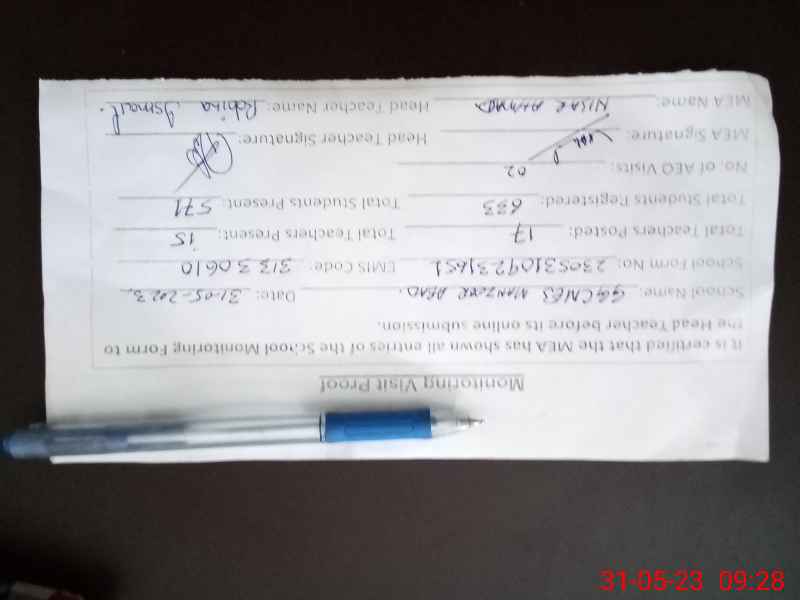 Monitoring Visit Proof
It is certified that the MEA has shown all entries of the School Monitoring Form to
the Head Teacher before its online submission.
School Name: GGCMES MANZOOR ABAD. Date: 31-05-2023
School Form No: 23053109231651 EMIS Code: 31330610
Total Teachers Posted: 17 Total Teachers Present: 15
Total Students Registered: 633 Total Students Present: 571
No. of AEO Visits: 02
MEA Signature: Head Teacher Signature:
MEA Name: NISAR AHMAD Head Teacher Name: Robina Ismail.
31-05-23 09:28